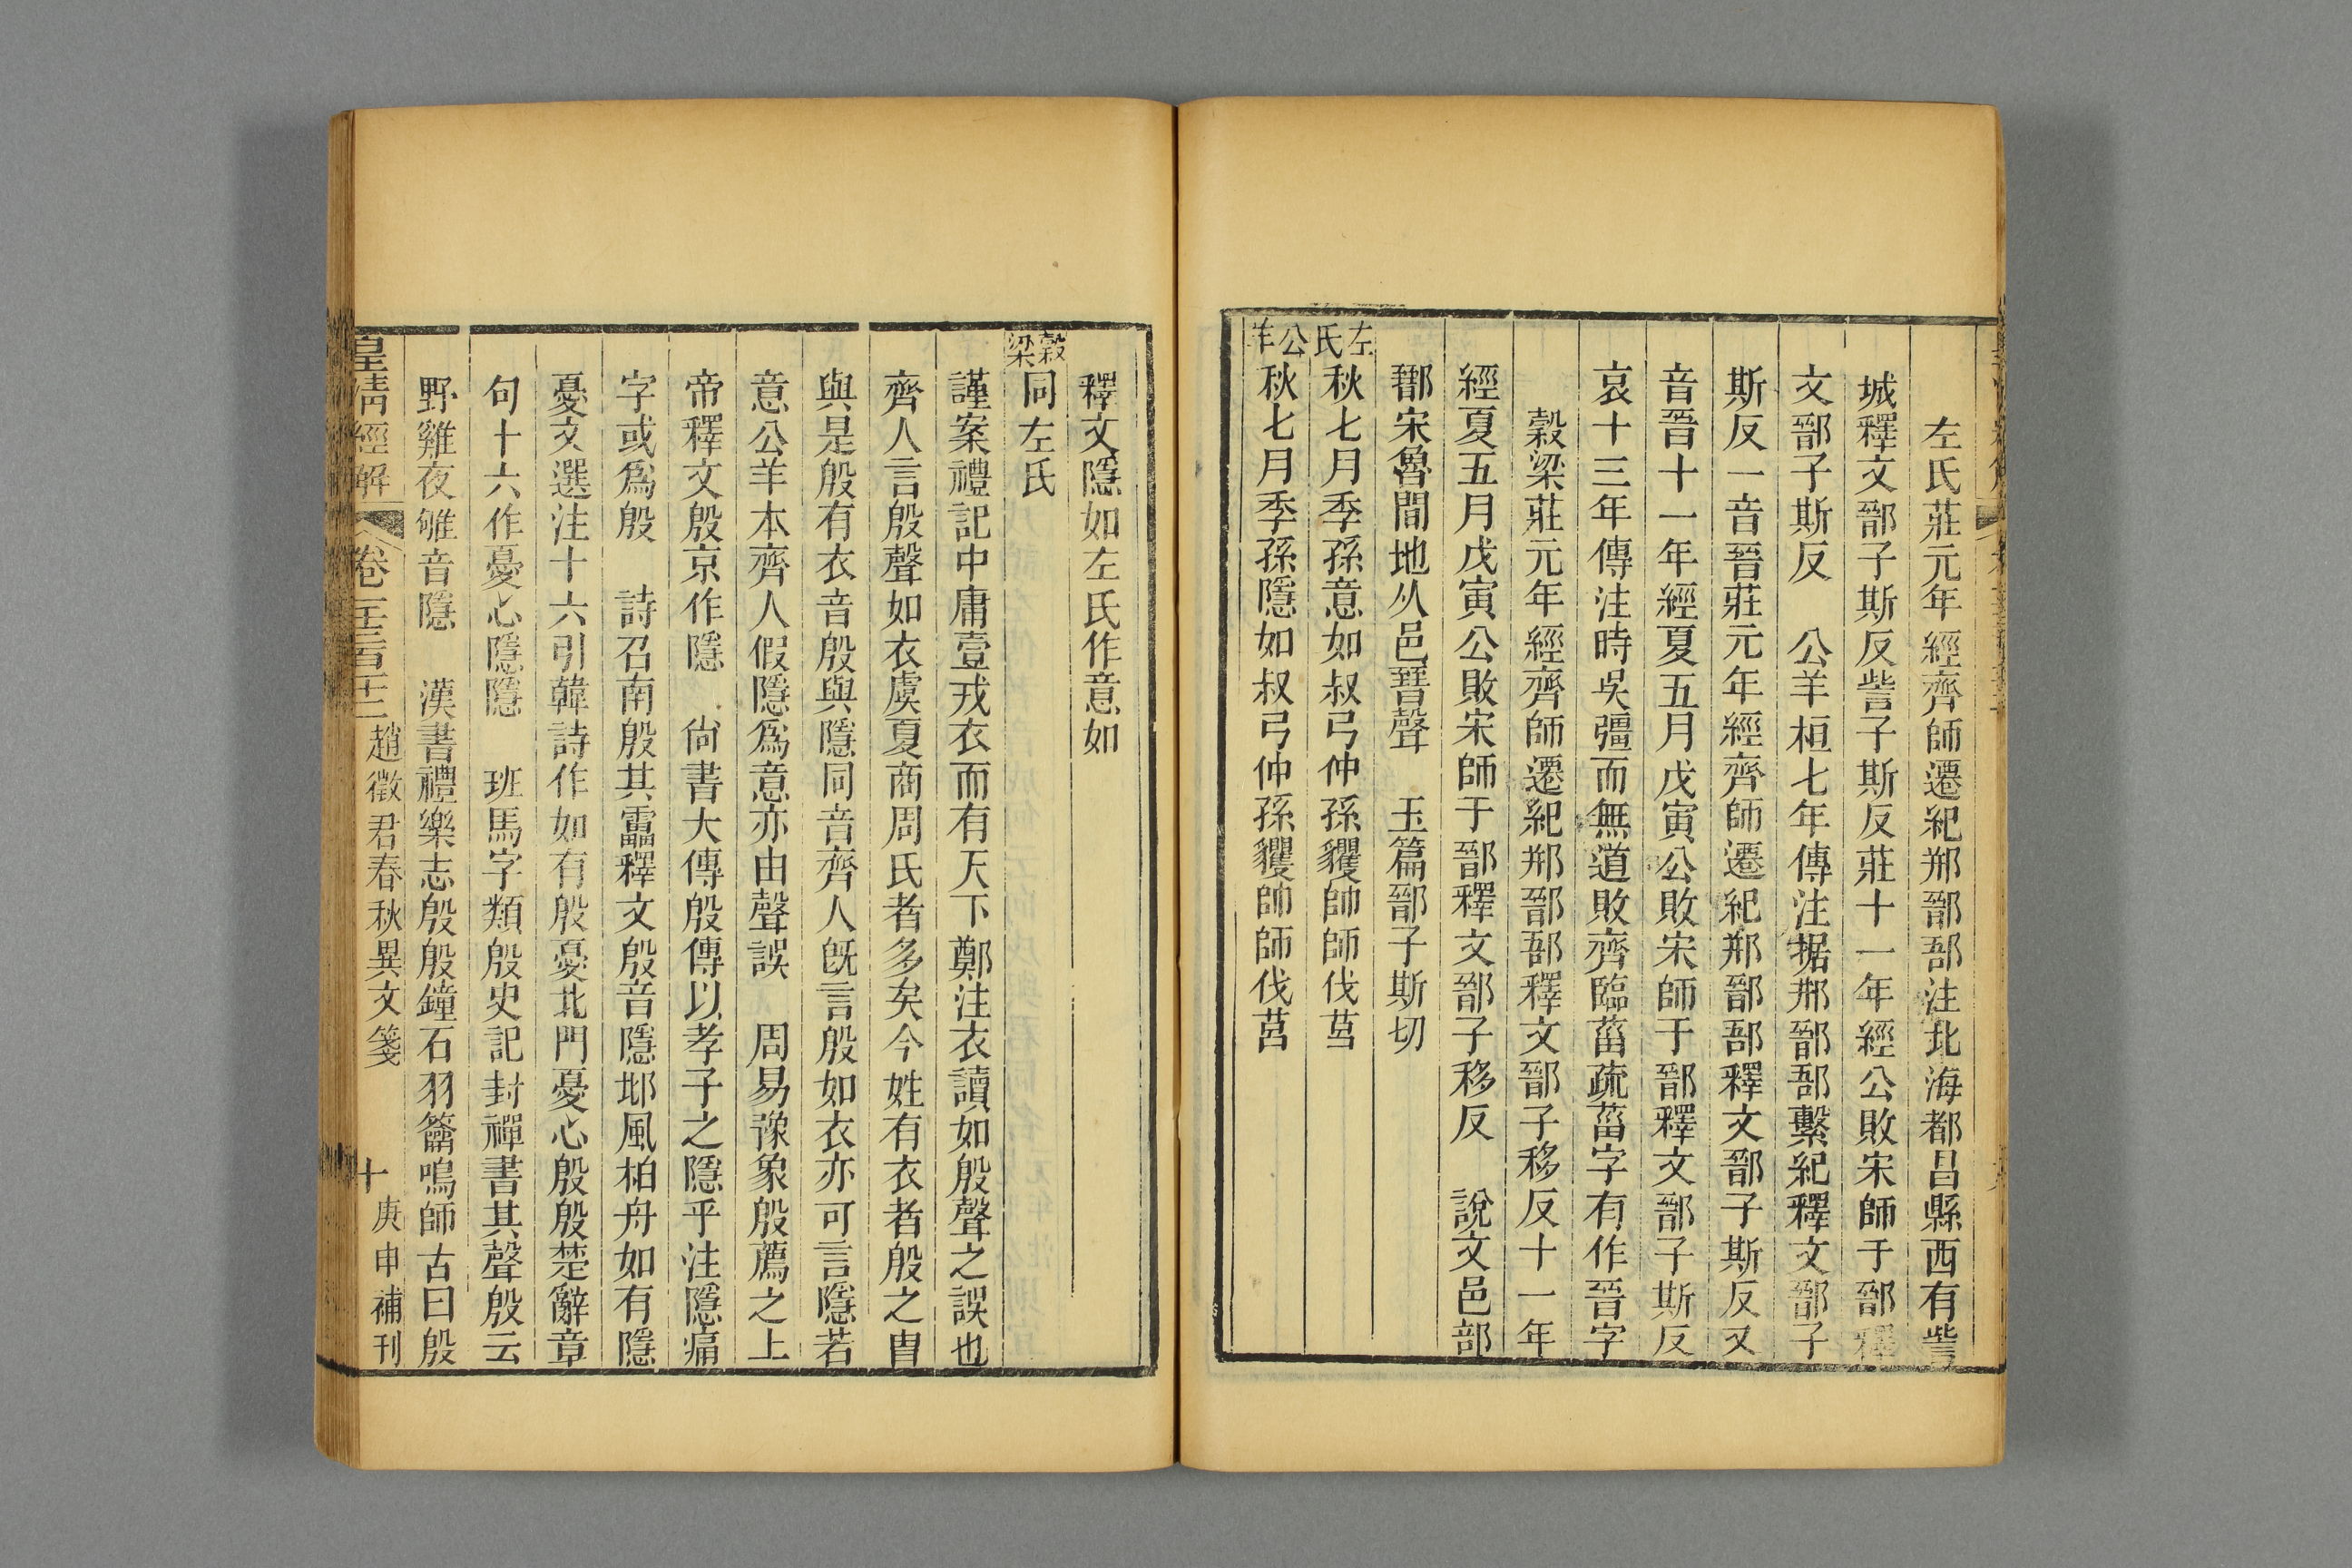 左氏莊元年經齊師遷紀郱鄑郚注北海都昌縣西有訾
城釋文鄑子斯反訾子斯反莊十一年經公敗宋師于鄑釋
文鄑子斯反　公羊桓七年傳注据郱鄑郚繫紀釋文鄑子
斯反一音晉莊元年經齊師遷紀郱鄑郚釋文鄑子斯反又
音晉十一年經夏五月戊寅公敗宋師于鄑釋文鄑子斯反
哀十三年傳注時吳彊而無道敗齊臨菑疏菑字有作晉字
穀梁莊元年經齊師遷紀郱鄑郚釋文鄑子移反十一年
經夏五月戊寅公敗宋師于鄑釋文鄑子移反　說文邑部
鄑宋魯間地从邑晉聲　玉篇鄑子斯切
左氏秋七月季孫意如叔弓仲孫貜帥師伐莒
公羊秋七月季孫隱如叔弓仲孫貜帥師伐莒
釋文隱如左氏作意如
穀梁同左氏
謹案禮記中庸壹戎衣而有天下鄭注衣讀如殷聲之誤也
齊人言殷聲如衣虞夏商周氏者多矣今姓有衣者殷之冑
與是殷有衣音殷與隱同音齊人既言殷如衣亦可言隱若
意公羊本齊人假隱爲意亦由聲誤　周易豫象殷薦之上
帝釋文殷京作隱　尙書大傳殷傳以孝子之隱乎注隱痛
字或爲殷　詩召南殷其靁釋文殷音隱邶風柏舟如有隱
憂文選注十六引韓詩作如有殷憂北門憂心殷殷楚辭章
句十六作憂心隱隱　班馬字類殷史記封禪書其聲殷云
野雞夜雊音隱　漢書禮樂志殷殷鐘石羽籥鳴師古曰殷
皇清經解　卷一千三百三十二　趙徵君春秋異文箋　十　庚申補刊